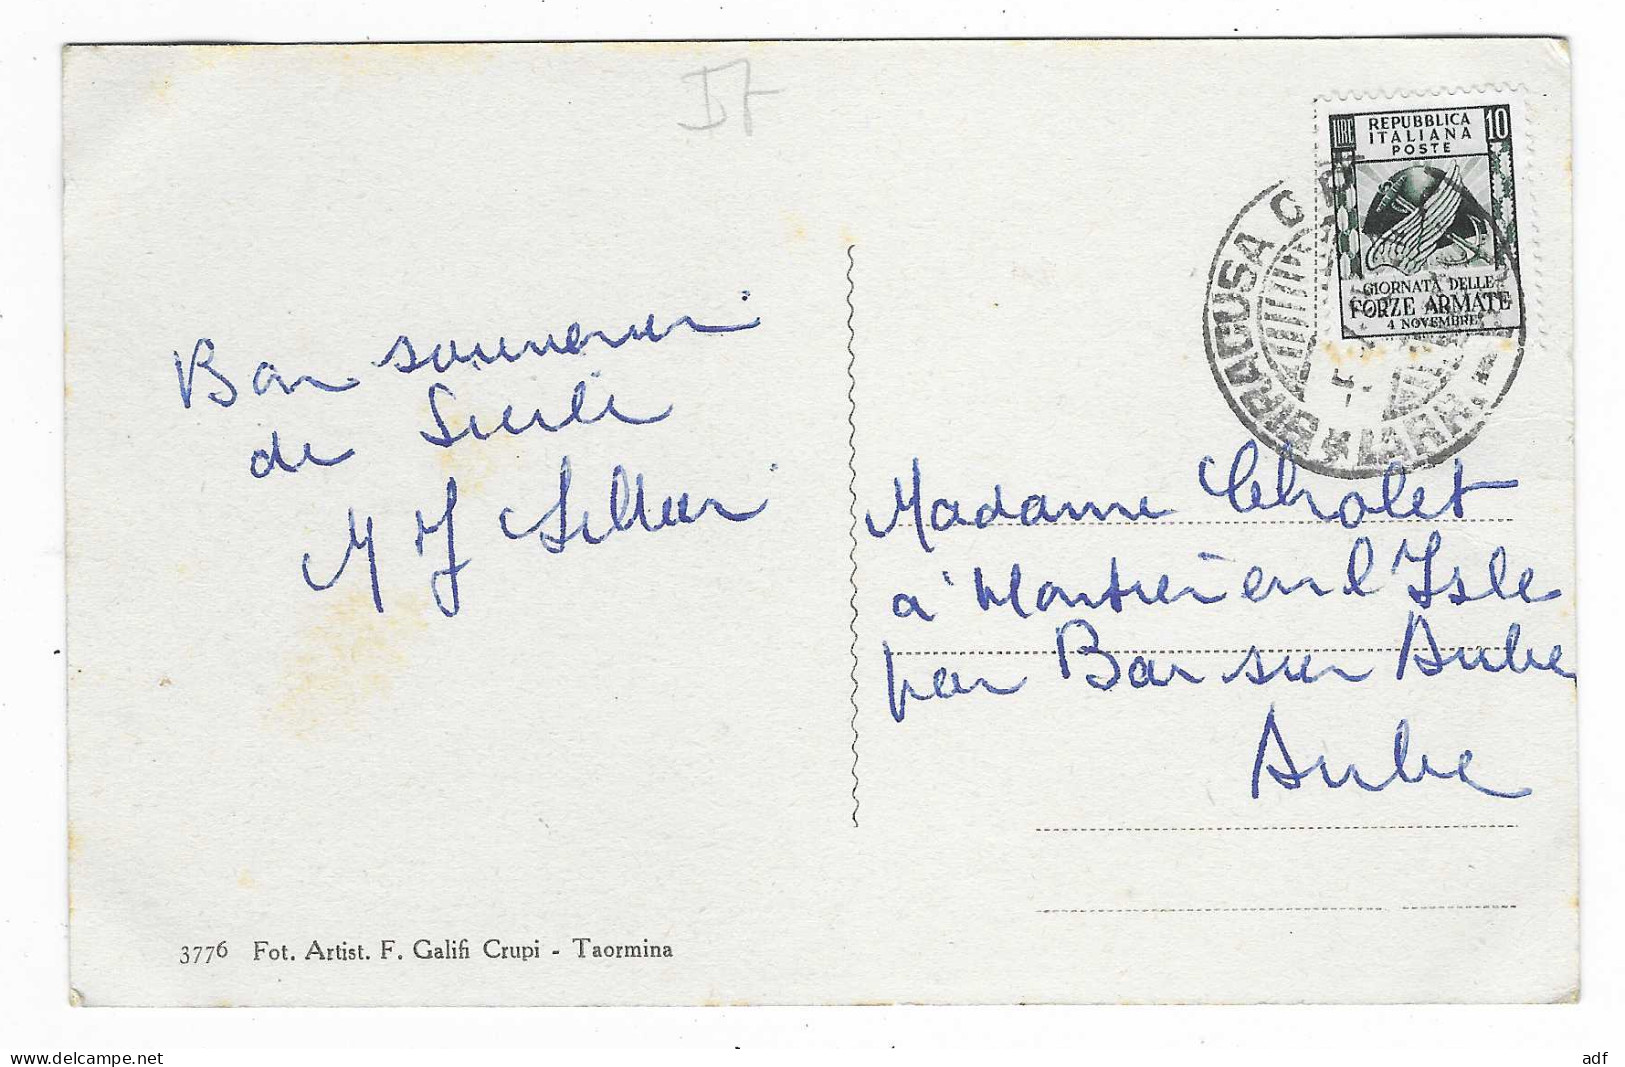 IT
REPUBBLICA
ITALIANA
POSTE
10
GIORNATA DELLE
FORZE ARMATE
4 NOVEMBRE
SIRAGUSA
ARR.
Bon souvenir
de Sicile
M J
Madame Cholet
à Montier en l'Isle
par Bar sur Aube
Aube
3776 Fot. Artist. F. Galifi Crupi - Taormina
www.delcampe.net
adf